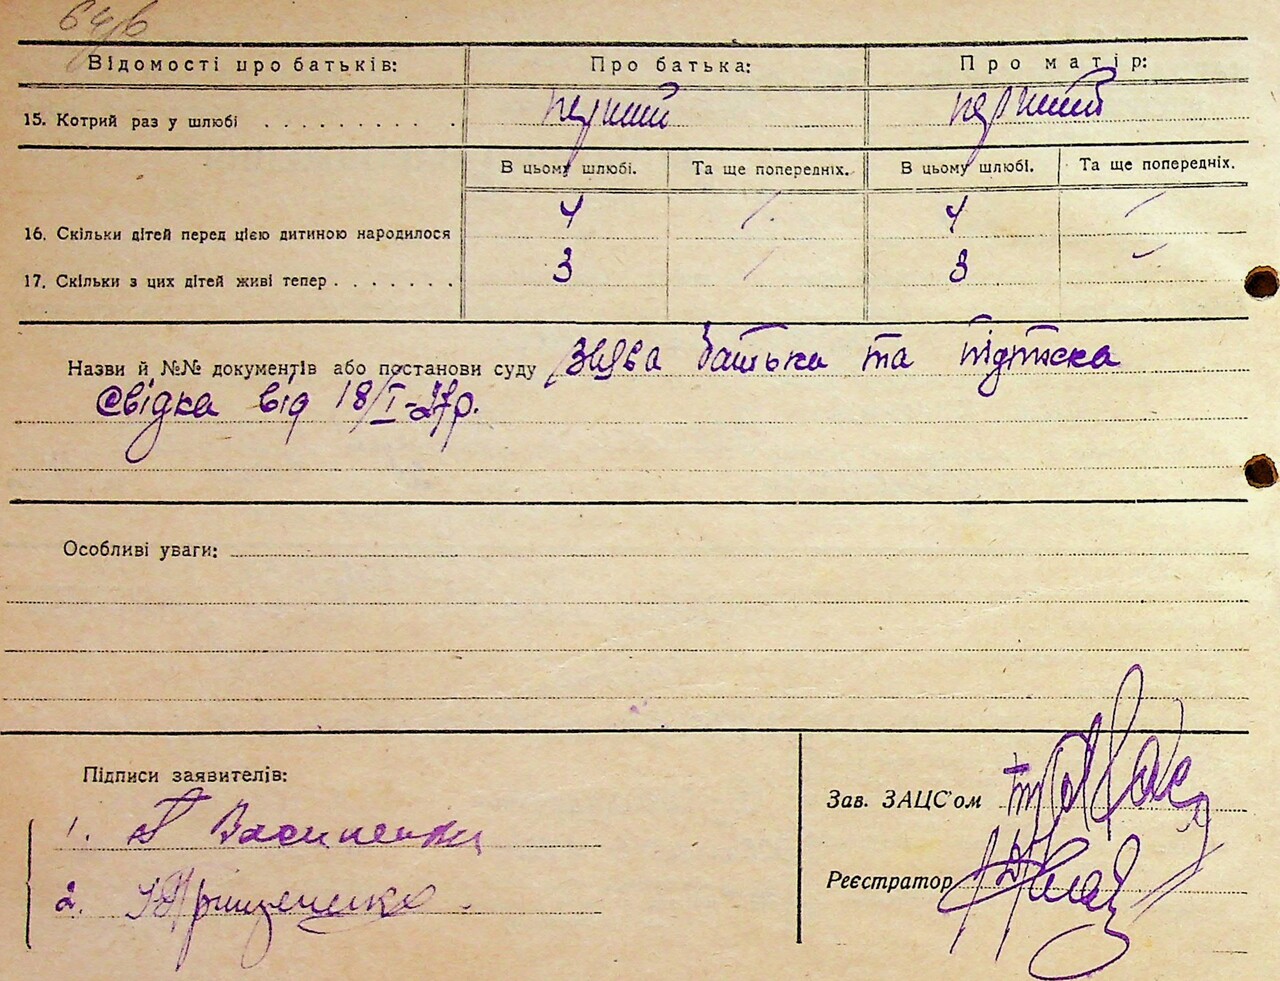 64/6
Відомості про батьків: Про батька: Про матір:
15. Котрий раз у шлюбі . . . . . . . . . . перший перший
В цьому шлюбі. Та ще попередніх. В цьому шлюбі. Та ще попередніх.
16. Скільки дітей перед цією дитиною народилося 4 / 4 /
17. Скільки з цих дітей живі тепер . . . . . . . 3 / 3 -
Назви й №№ документів або постанови суду заява батька та підписка
свідка від 18/I-27р.
Особливі уваги:
Підписи заявителів:
1. Василенко
Зав. ЗАЦС'ом
2. Грищенко
Реєстратор